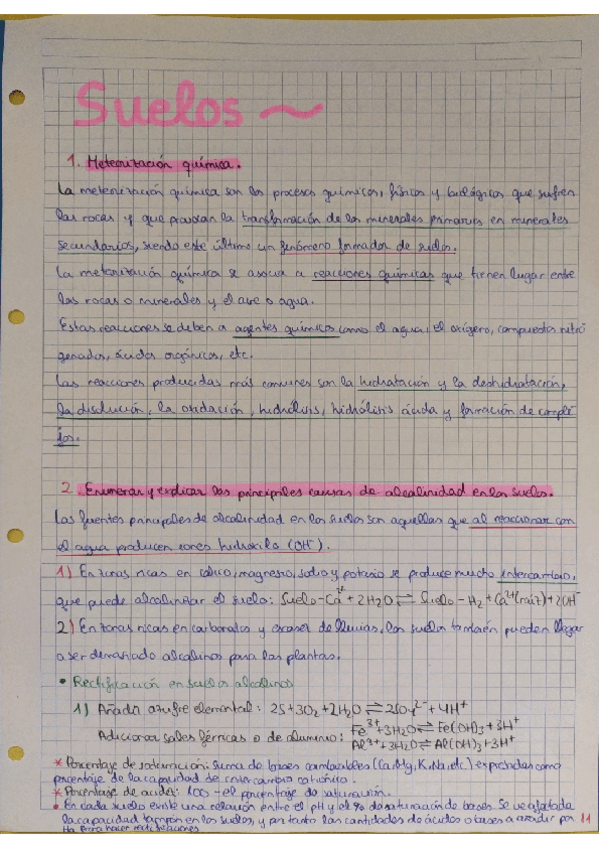 Suelos ~
1. Meteorización química.
La meteorización química son los procesos químicos, físicos y biológicos que sufren
las rocas y que provocan la transformación de los minerales primarios en minerales
secundarios, siendo este último un fenómeno formador de suelos.
La meteorización química se asocia a reacciones químicas que tienen lugar entre
las rocas o minerales y el aire o agua.
Estas reacciones se deben a agentes químicos como el agua, el oxígeno, compuestos nitro
genados, ácidos orgánicos, etc.
Las reacciones producidas más comunes son la hidratación y la deshidratación,
la disolución, la oxidación, hidrólisis, hidrólisis ácida y formación de comple
jos.
2. Enumerar y explicar las principales causas de alcalinidad en los suelos.
Las fuentes principales de alcalinidad en los suelos son aquellas que al reaccionar con
el agua producen iones hidroxilo (OH⁻).
1) En zonas ricas en calcio, magnesio, sodio y potasio se produce mucho intercambio,
que puede alcalinizar el suelo: Suelo-Ca²⁺ + 2H₂O ⇌ Suelo-H₂ + Ca²⁺(raíz) + 2OH⁻
2) En zonas ricas en carbonatos y escasez de lluvias, los suelos también pueden llegar
a ser demasiado alcalinos para las plantas.
• Rectificación en suelos alcalinos
1) Añadir azufre elemental: 2S + 3O₂ + 2H₂O ⇌ 2SO₄²⁻ + 4H⁺
Adicionar sales férricas o de aluminio: Fe³⁺ + 3H₂O ⇌ Fe(OH)₃ + 3H⁺
Al³⁺ + 3H₂O ⇌ Al(OH)₃ + 3H⁺
* Porcentaje de saturación: suma de bases cambiables (Ca, Mg, K, Na, etc) expresadas como
porcentaje de la capacidad de intercambio catiónico.
* Porcentaje de acidez: 100 - el porcentaje de saturación.
• En cada suelo existe una relación entre el pH y el % de saturación de bases. Se ve afectada
la capacidad tampón en los suelos, y por tanto las cantidades de ácidos o bases a añadir por 11
Ha para hacer rectificaciones